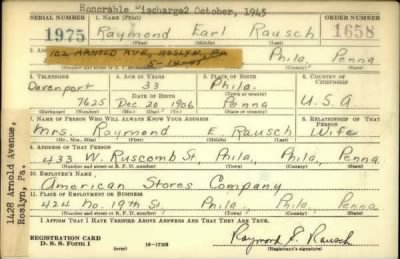 Honorable Discharge2 October, 1945
SERIAL NUMBER 1. NAME (Print) ORDER NUMBER
1975 Raymond Earl Rausch 1658
(First) (Middle) (Last)
102 ARNOLD AVE, ROSLYN, PA Phila, Penna
5-14-41
3. TELEPHONE 4. AGE IN YEARS 5. PLACE OF BIRTH 6. COUNTRY OF CITIZENSHIP
Davenport 33 Phila.
DATE OF BIRTH (Town or county)
7625 Dec 20 1906 Penna U.S.A
(Exchange) (Number) (Mo.) (Day) (Yr.) (State or country)
7. NAME OF PERSON WHO WILL ALWAYS KNOW YOUR ADDRESS 8. RELATIONSHIP OF THAT PERSON
Mrs. Raymond E Rausch Wife
(Mr., Mrs., Miss) (First) (Middle) (Last)
9. ADDRESS OF THAT PERSON
433 W. Ruscomb St, Phila, Phila, Penna.
(Number and street or R. F. D. number) (Town) (County) (State)
10. EMPLOYER'S NAME
American Stores Company
11. PLACE OF EMPLOYMENT OR BUSINESS
424 No. 19th St, Phila, Phila, Penna
(Number and street or R. F. D. number) (Town) (County) (State)
I AFFIRM THAT I HAVE VERIFIED ABOVE ANSWERS AND THAT THEY ARE TRUE.
REGISTRATION CARD
D. S. S. Form 1 (over) 16-17105
Raymond E. Rausch
(Registrant's signature)
1428 Arnold Avenue,
Roslyn, Pa.